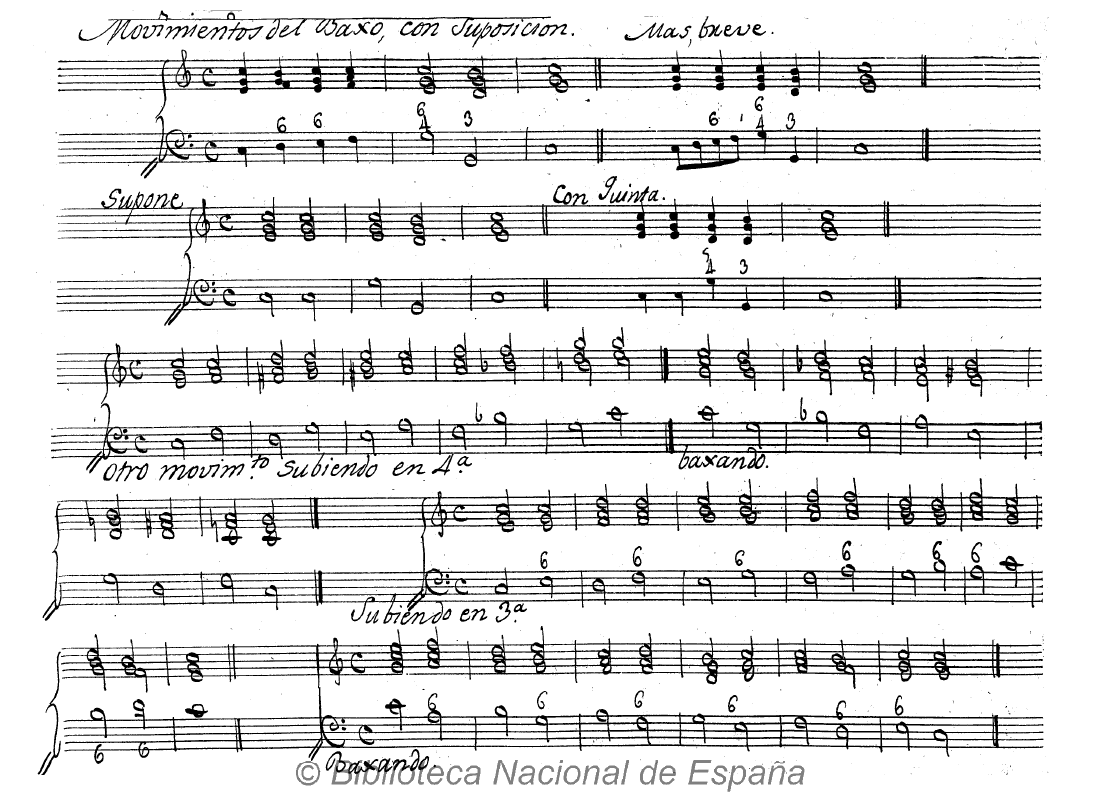 Movimientos del Baxo, con Suposicion. Mas, breve.
6 6 6 4 3 6 6 4 3
Supone Con Quinta.
5 4 3
Otro movim.to Subiendo en 4.a baxando.
6 6 6 6 6 6
Subiendo en 3.a
6 6 6 6 6 6 6
Baxando.
© Biblioteca Nacional de España